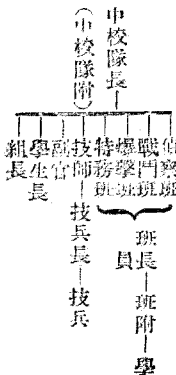 中校隊長
(中校隊附)
偵察班
戰鬥班
爆擊班
特務班
班長—班附—學員
技師—技兵長—技兵
副官
學生長
組長